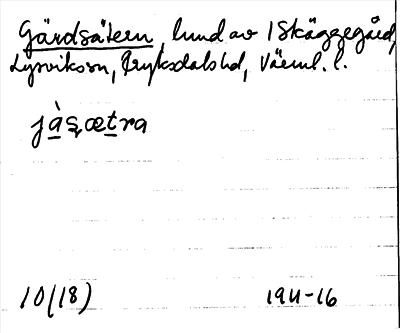 Gärdsätern, lund av 1 Skäggegård,
Lysviks sn, Fryksdals hd, Värml. l.
jàṣætra
10(18)
1911-16